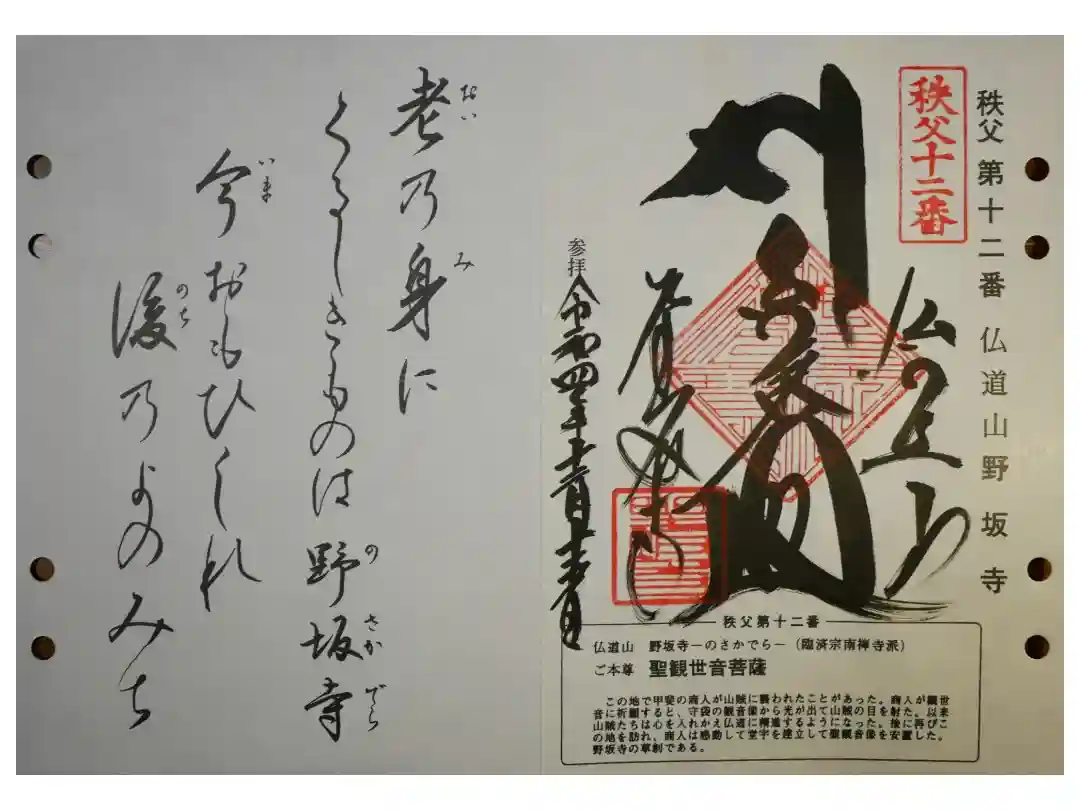 秩父第十二番 仏道山野坂寺
秩父十二番
仏道山
野坂寺
参拝 令和四年
秩父第十二番
仏道山 野坂寺−のさかでら−（臨済宗南禅寺派）
ご本尊 聖観世音菩薩
この地で甲斐の商人が山賊に襲われたことがあった。商人が観世
音に祈願すると、守袋の観音像から光が出て山賊の目を射た。以来
山賊たちは心を入れかえ仏道に精進するようになった。後に再びこ
の地を訪れ、商人は感動して堂宇を建立して聖観音像を安置した。
野坂寺の草創である。
おい み
老乃身に
の さか でら
くるしきものは野坂寺
いま
今おもひしれ
のち
後乃よのみち